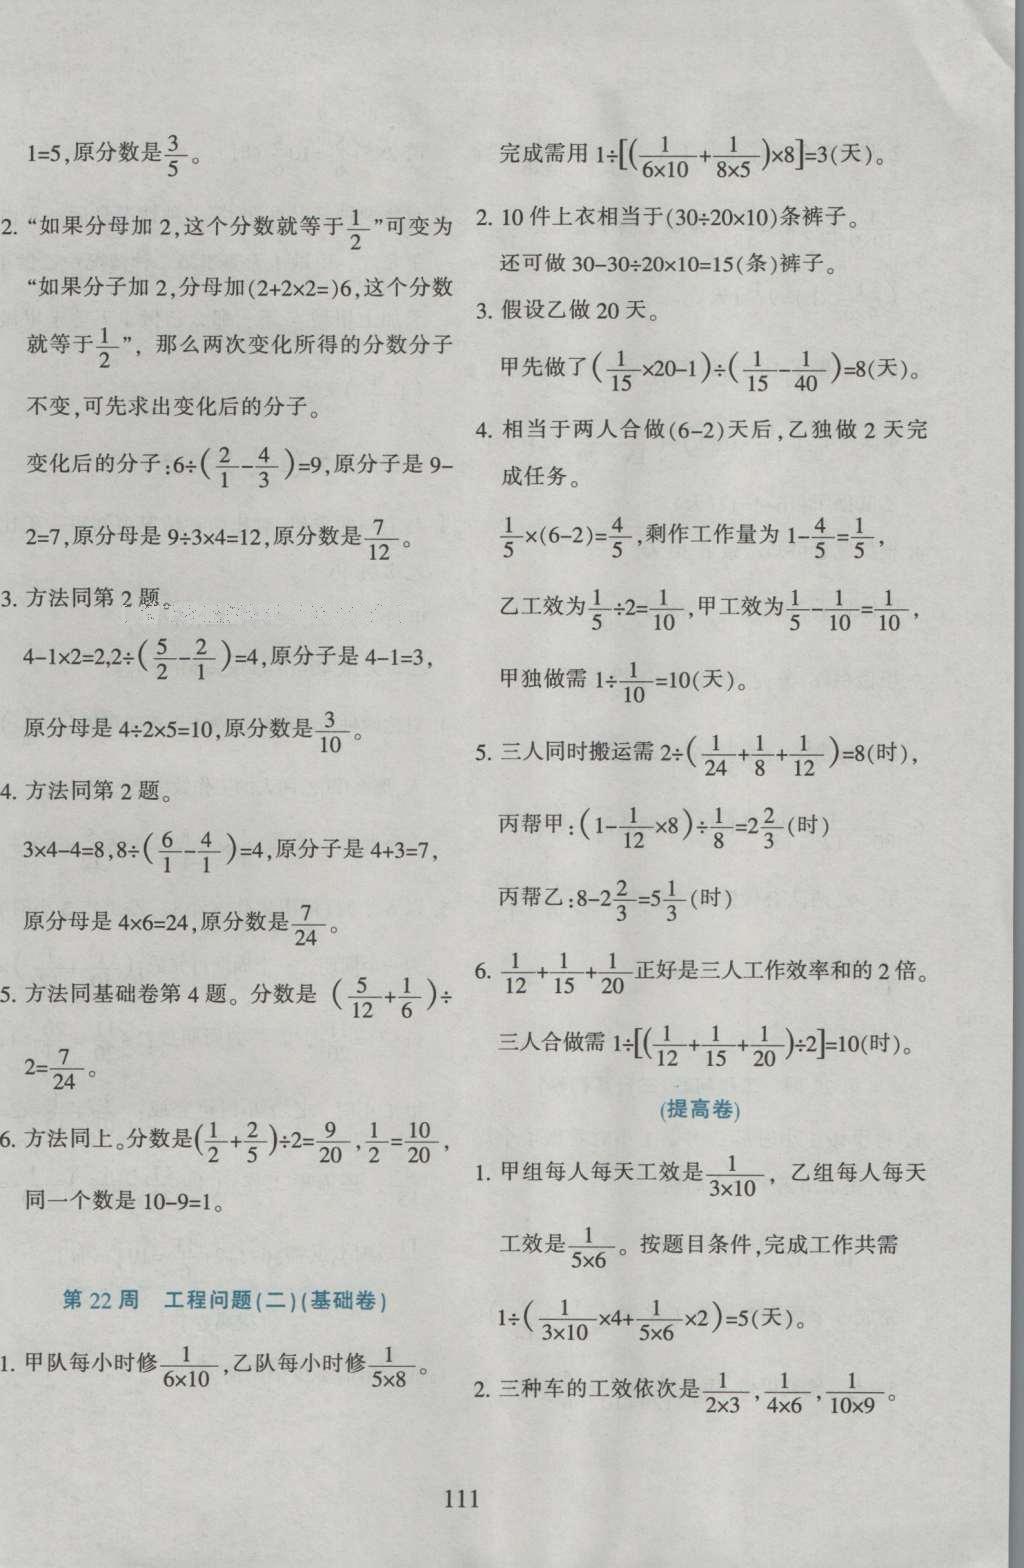 1=5,原分数是3/5。
2. “如果分母加 2,这个分数就等于1/2”可变为
“如果分子加 2,分母加(2+2×2=)6,这个分数
就等于1/2”，那么两次变化所得的分数分子
不变,可先求出变化后的分子。
变化后的分子:6÷(2/1-4/3)=9,原分子是 9-
2=7,原分母是 9÷3×4=12,原分数是7/12。
3. 方法同第 2 题。
4-1×2=2,2÷(5/2-2/1)=4,原分子是 4-1=3,
原分母是 4÷2×5=10,原分数是3/10。
4. 方法同第 2 题。
3×4-4=8,8÷(6/1-4/1)=4,原分子是 4+3=7,
原分母是 4×6=24,原分数是7/24。
5. 方法同基础卷第 4 题。分数是 (5/12+1/6)÷
2=7/24。
6. 方法同上。分数是(1/2+2/5)÷2=9/20,1/2=10/20,
同一个数是 10-9=1。
第 22 周 工程问题(二)(基础卷)
1. 甲队每小时修1/(6×10),乙队每小时修1/(5×8)。
完成需用 1÷[(1/(6×10)+1/(8×5))×8]=3(天)。
2. 10 件上衣相当于(30÷20×10)条裤子。
还可做 30-30÷20×10=15(条)裤子。
3. 假设乙做 20 天。
甲先做了(1/15×20-1)÷(1/15-1/40)=8(天)。
4. 相当于两人合做(6-2)天后,乙独做 2 天完
成任务。
1/5×(6-2)=4/5,剩作工作量为 1-4/5=1/5,
乙工效为1/5÷2=1/10,甲工效为1/5-1/10=1/10,
甲独做需 1÷1/10=10(天)。
5. 三人同时搬运需 2÷(1/24+1/8+1/12)=8(时),
丙帮甲:(1-1/12×8)÷1/8=2 2/3(时)
丙帮乙:8-2 2/3=5 1/3(时)
6. 1/12+1/15+1/20正好是三人工作效率和的 2 倍。
三人合做需 1÷[(1/12+1/15+1/20)÷2]=10(时)。
(提高卷)
1. 甲组每人每天工效是1/(3×10)，乙组每人每天
工效是1/(5×6)。按题目条件,完成工作共需
1÷(1/(3×10)×4+1/(5×6)×2)=5(天)。
2. 三种车的工效依次是1/(2×3),1/(4×6),1/(10×9)。
111